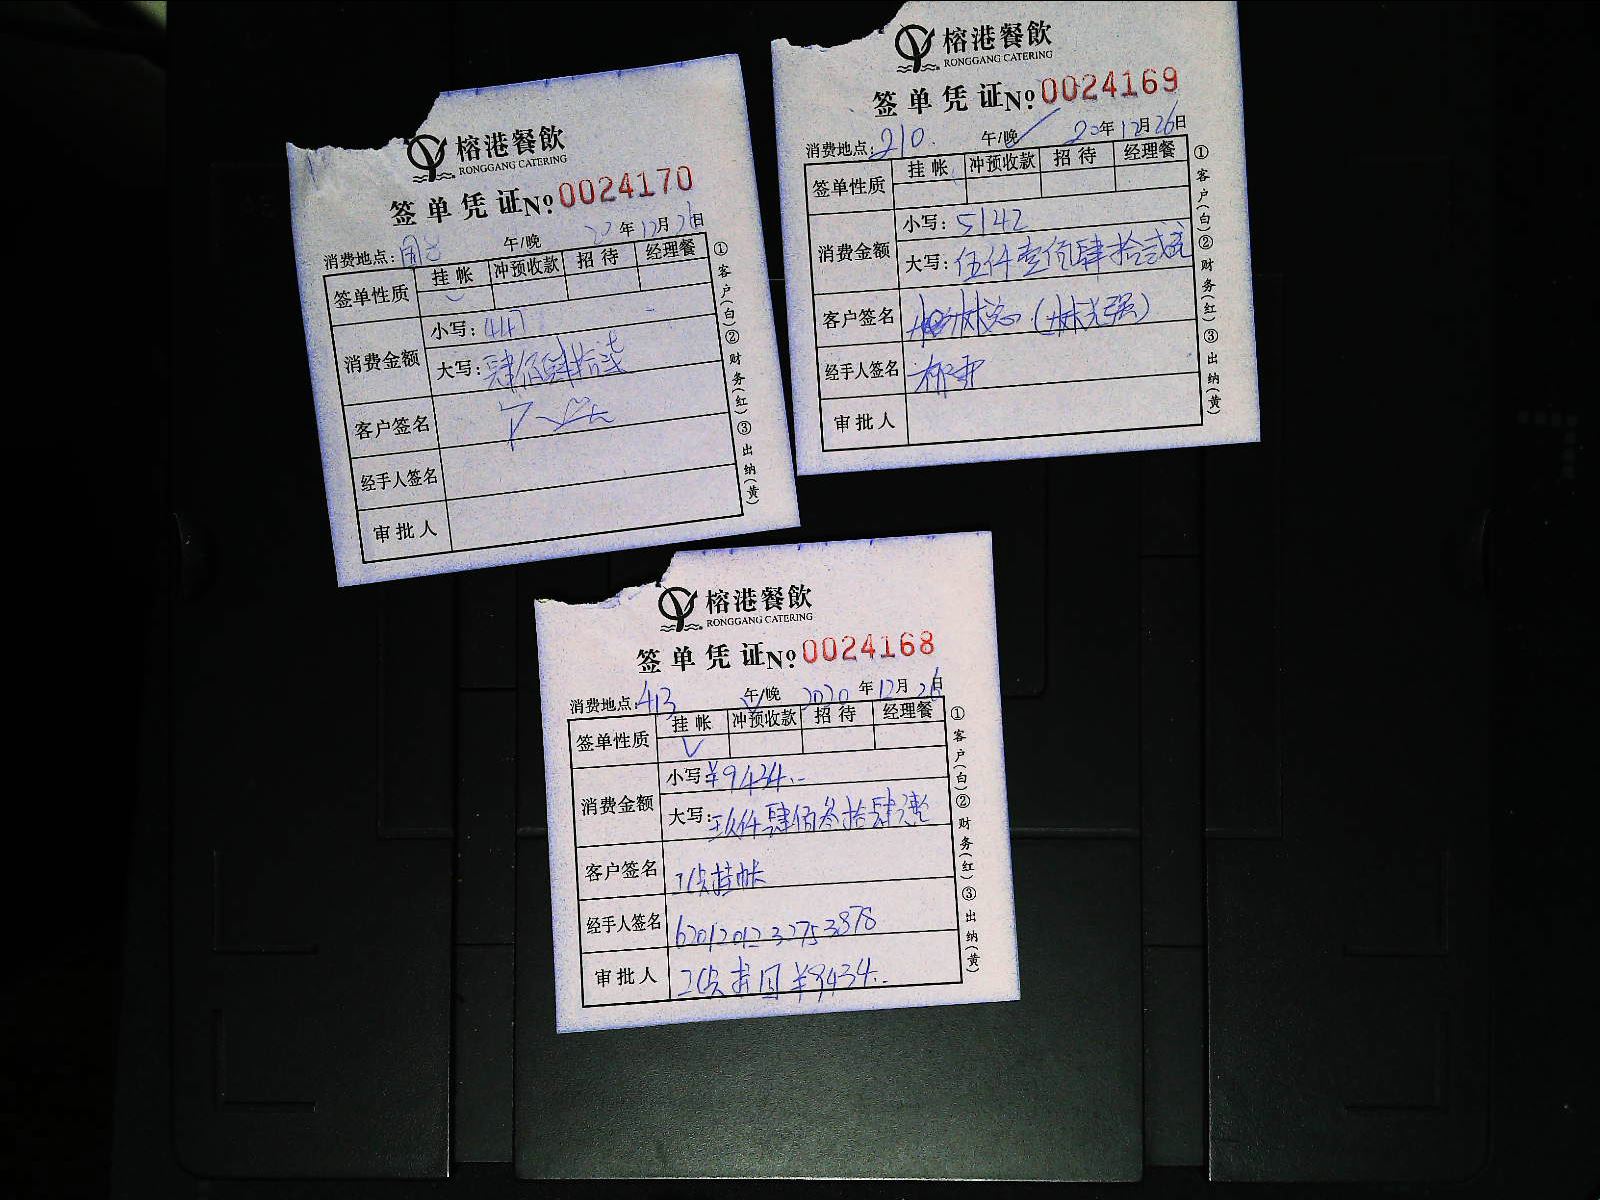 榕港餐飲
RONGGANG CATERING
签单凭证No 0024170
消费地点: 午/晚 20年12月26日
签单性质 挂帐 冲预收款 招待 经理餐
消费金额 小写: 447
大写: 肆佰肆拾柒
客户签名
经手人签名
审批人
①客户(白)②财务(红)③出纳(黄)
榕港餐飲
RONGGANG CATERING
签单凭证No 0024169
消费地点: 210. 午/晚 20年12月26日
签单性质 挂帐 冲预收款 招待 经理餐
消费金额 小写: 5142
大写: 伍仟壹佰肆拾贰元
客户签名 林总(林光强)
经手人签名
审批人
①客户(白)②财务(红)③出纳(黄)
榕港餐飲
RONGGANG CATERING
签单凭证No 0024168
消费地点: 413 午/晚 2020年12月26日
签单性质 挂帐 冲预收款 招待 经理餐
消费金额 小写: ¥9434.-
大写: 玖仟肆佰叁拾肆元
客户签名 挂帐
经手人签名 6201201232753878
审批人 ¥9434.-
①客户(白)②财务(红)③出纳(黄)